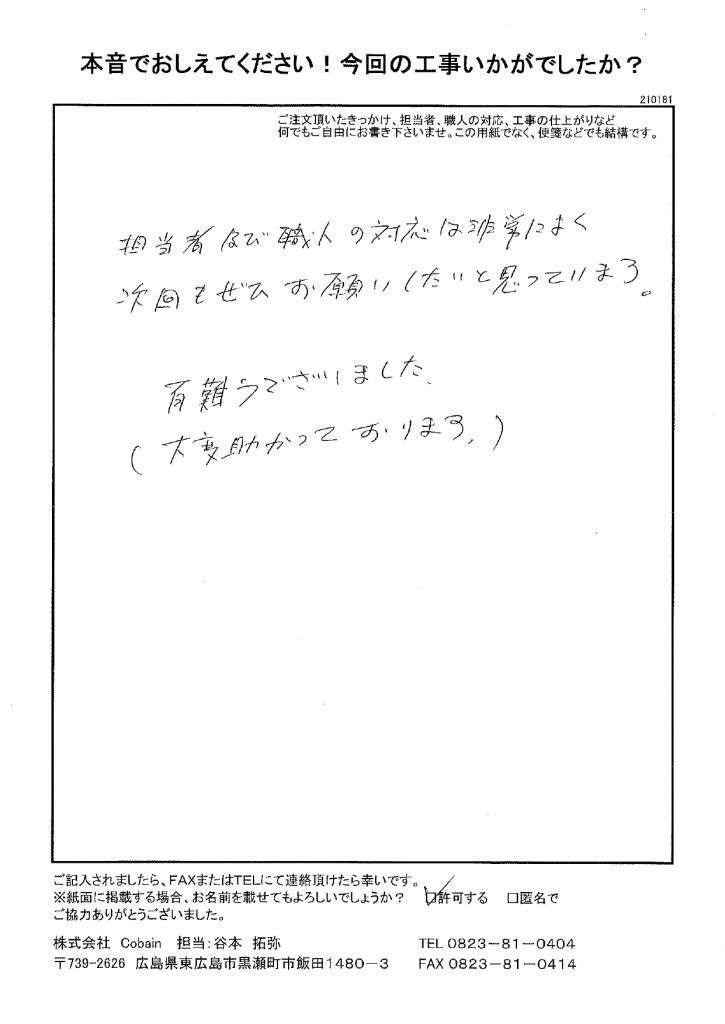 本音でおしえてください！今回の工事いかがでしたか？
210181
ご注文頂いたきっかけ、担当者、職人の対応、工事の仕上がりなど
何でもご自由にお書き下さいませ。この用紙でなく、便箋などでも結構です。
担当者及び職人の対応は非常によく
次回もぜひお願いしたいと思っています。
有難うございました。
(大変助かっております。)
ご記入されましたら、FAXまたはTELにて連絡頂けたら幸いです。
※紙面に掲載する場合、お名前を載せてもよろしいでしょうか？ ☑許可する □匿名で
ご協力ありがとうございました。
株式会社 Cobain 担当:谷本 拓弥 TEL 0823-81-0404
〒739-2626 広島県東広島市黒瀬町市飯田1480-3 FAX 0823-81-0414